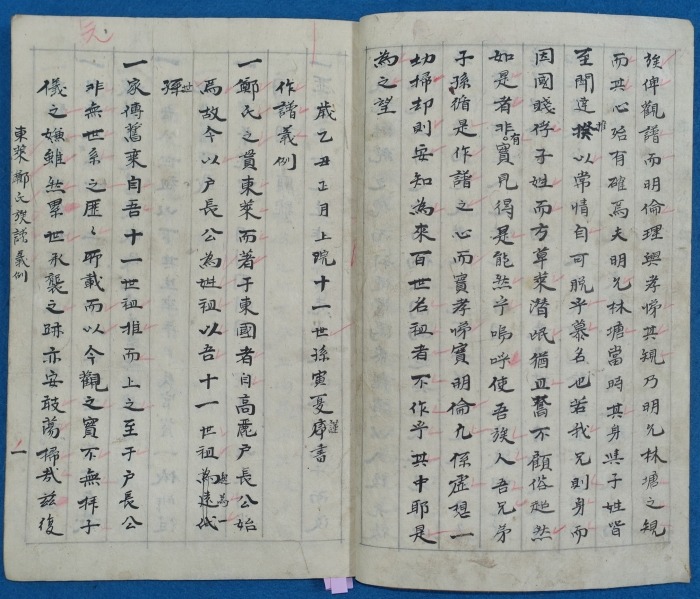 族俾觀譜而明倫理興孝悌其規乃明允林塘之規
而其心殆有確焉夫明允林塘當時其身與子姓皆
至聞達揆以常情自可脫乎慕名也若我兄則身而
推
因國賤得子姓而方草萊潛氓猶且奮不顧俗超然
如是者非實見得是能然乎嗚呼使吾族人吾兄弟
有
子孫循是作譜之心而實孝悌實明倫九係虛想一
切掃却則安知為來百世名祖者不作乎其中耶是
為之望
歲乙丑正月上院十一世孫寅夏序書
謹
作譜義例
一鄭氏之貫東萊而著于東國者自高麗戶長公始
焉故今以戶長公為姓祖以吾十一世祖為遠代
與為一
孫
世
一家傳舊來自吾十一世祖推而上之至于戶長公
非無世系之歷〻所載而以今觀之實不無拜子
儀之嫌雖然累世承襲之跡亦安敢蕩掃哉茲復
東萊鄭氏族譜義例
一